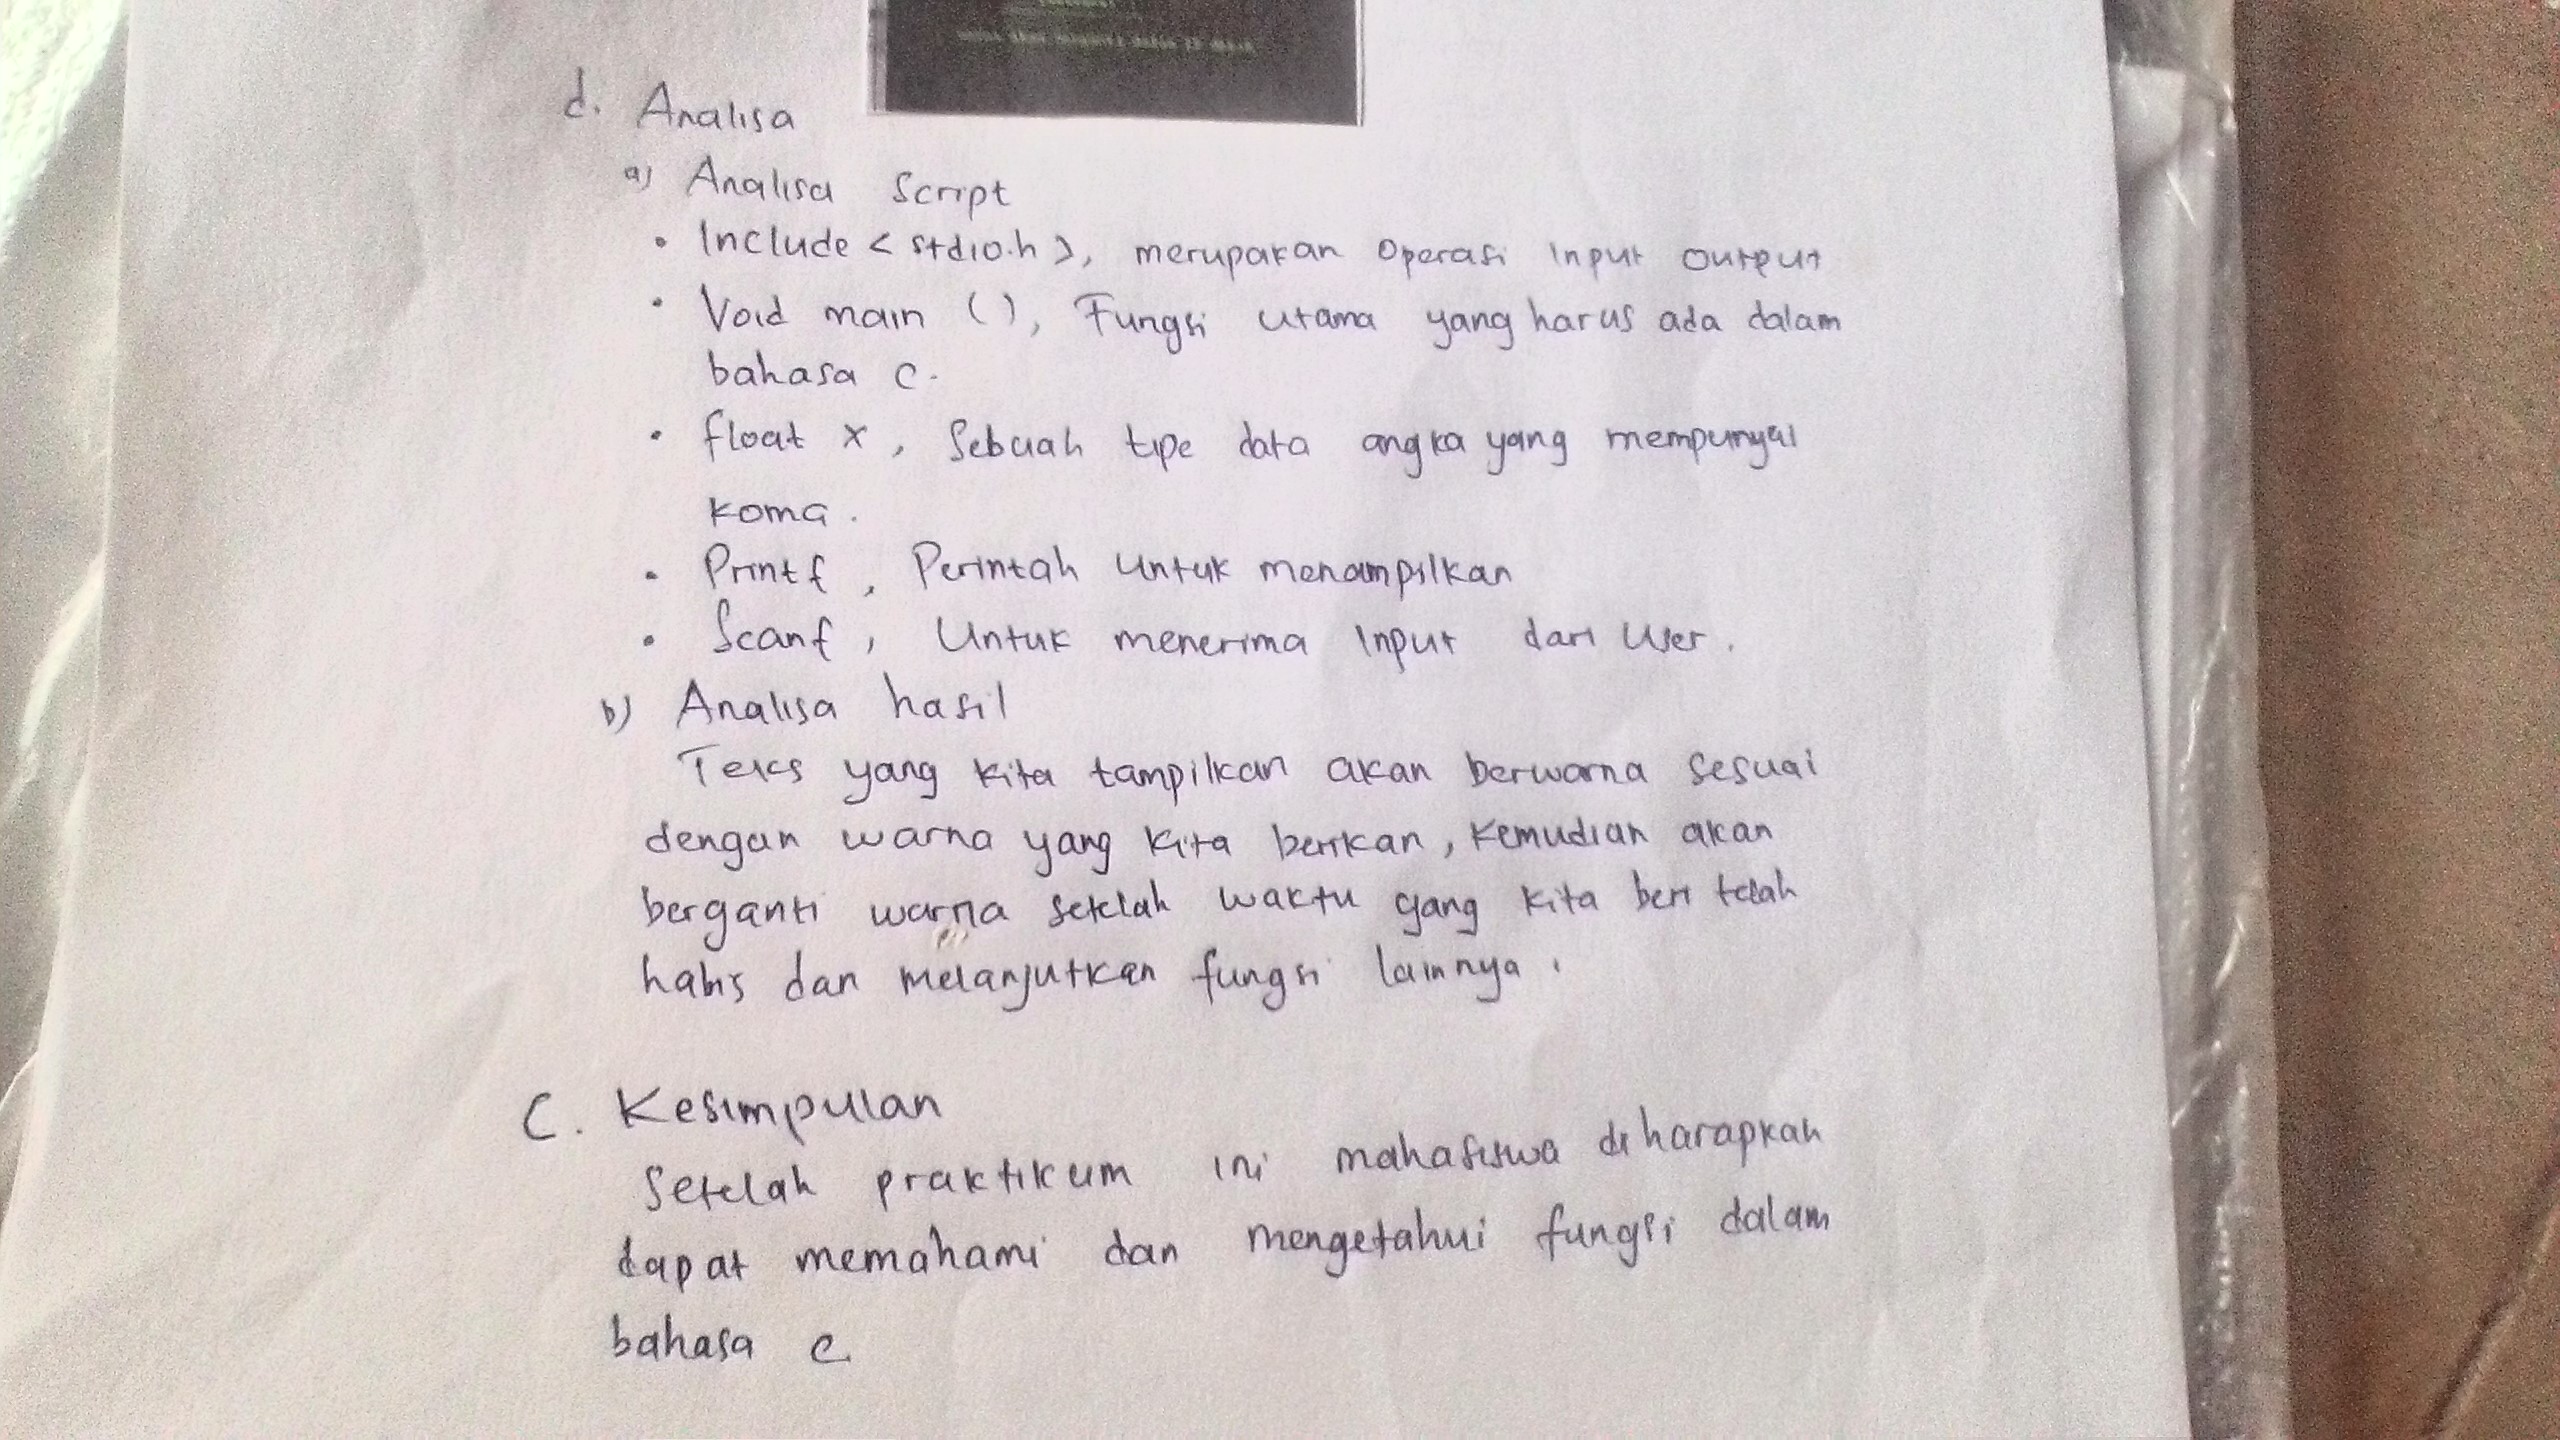 d. Analisa
a) Analisa Script
• Include < stdio.h >, merupakan operasi input output
• Void main ( ), Fungsi utama yang harus ada dalam
bahasa C.
• float x, Sebuah tipe data angka yang mempunyai
koma.
• Printf, Perintah untuk menampilkan
• Scanf, Untuk menerima input dari user.
b) Analisa hasil
Teks yang kita tampilkan akan berwarna sesuai
dengan warna yang kita berikan, kemudian akan
berganti warna setelah waktu yang kita beri telah
habis dan melanjutkan fungsi lainnya.
C. Kesimpulan
Setelah praktikum ini mahasiswa diharapkan
dapat memahami dan mengetahui fungsi dalam
bahasa C